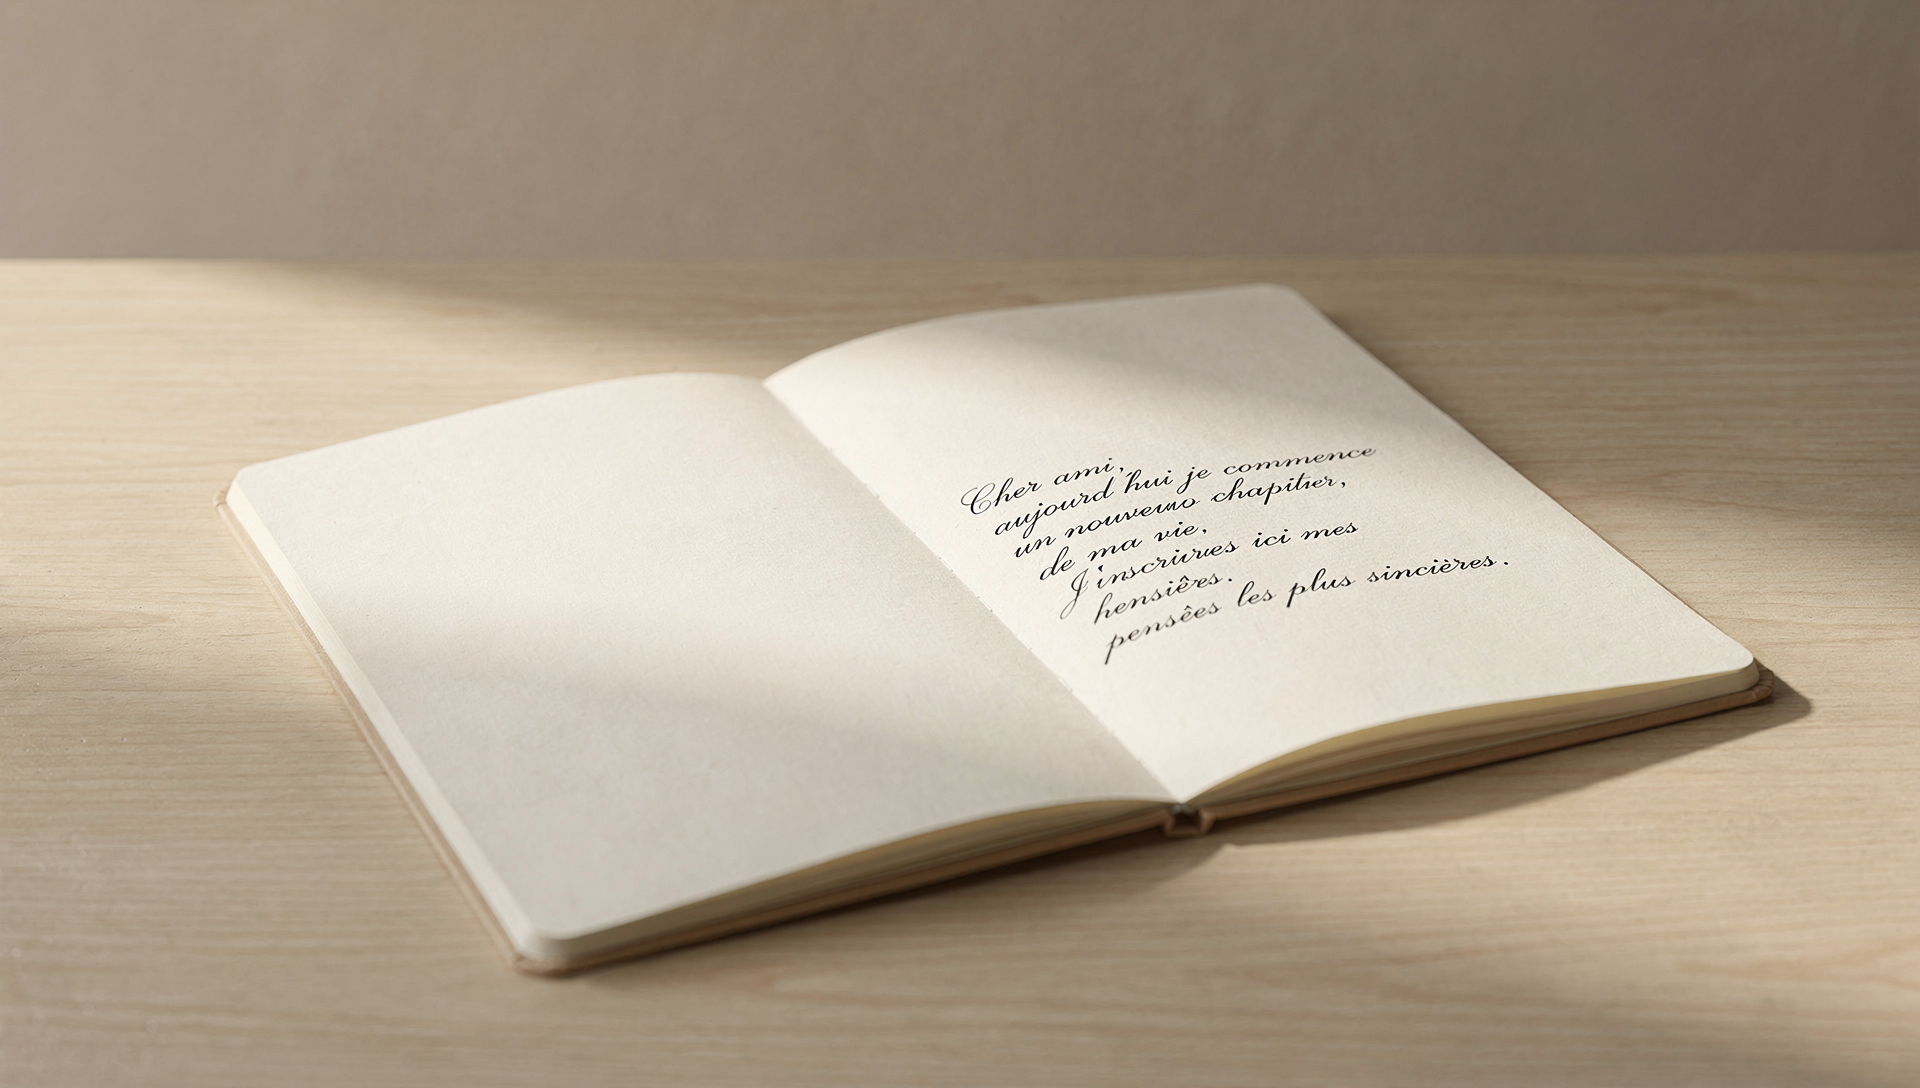 Cher ami,
aujourd'hui je commence
un nouveuio chapitier,
de ma vie,
J'inscriures ici mes
hensiêrs.
pensêes les plus sincières.